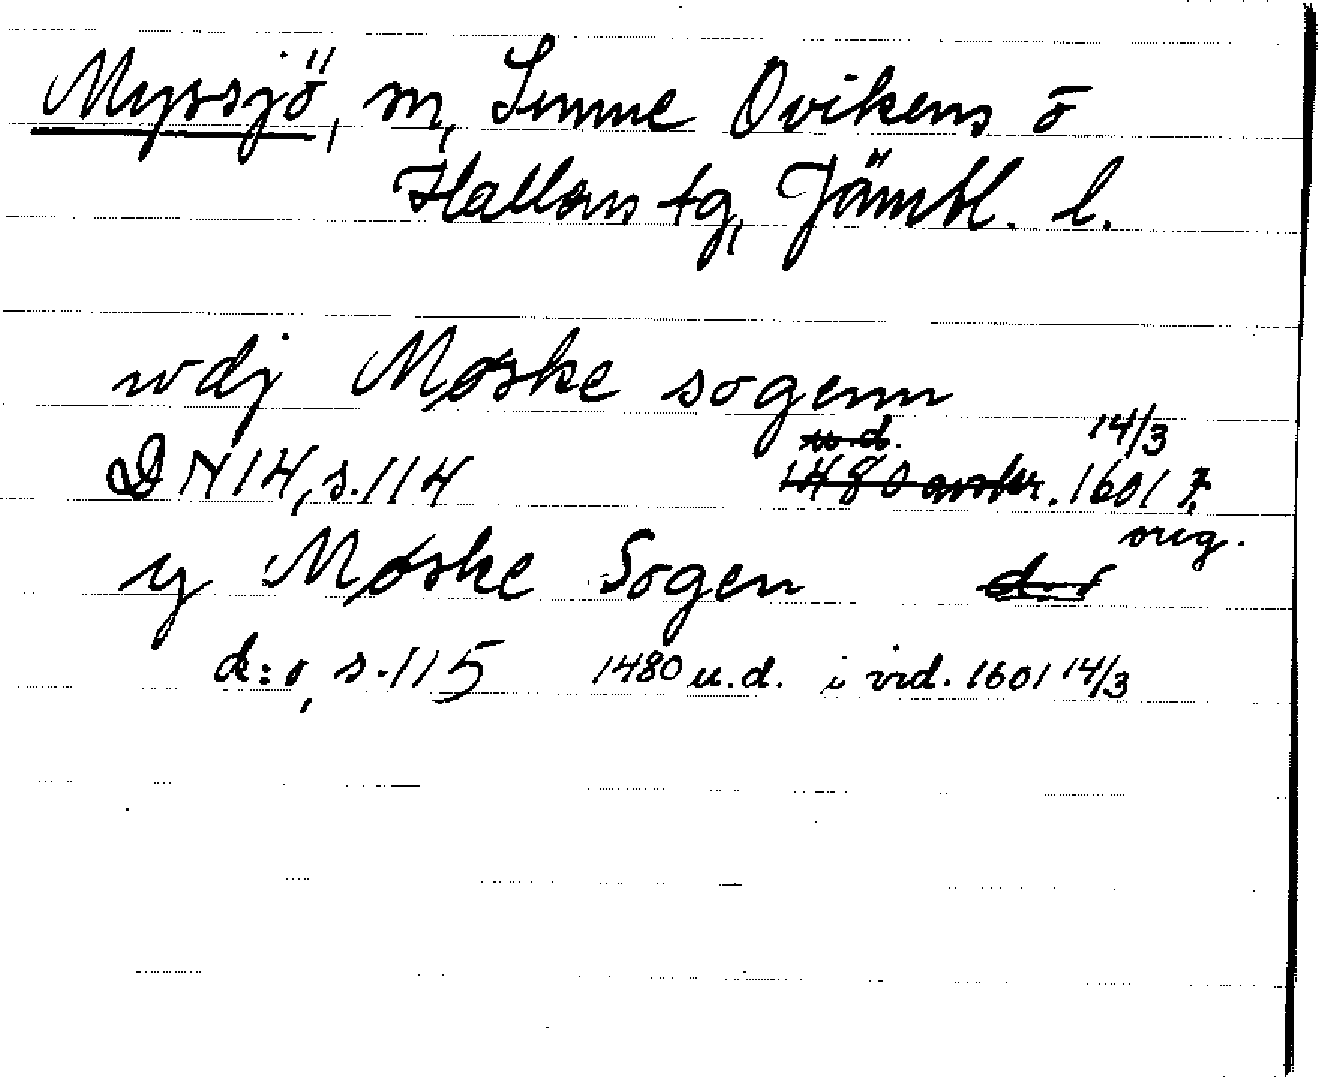 Myssjö, sn, Sunne Ovikens o
Hallens tg, Jämtl. l.
wdj Møske sogenn
u.d. 14/3
DN 14, s. 114 1480 avskr. 1601
orig.
y Møske Sogen d:o
d:o, s. 115 1480 u.d. i vid. 1601 14/3